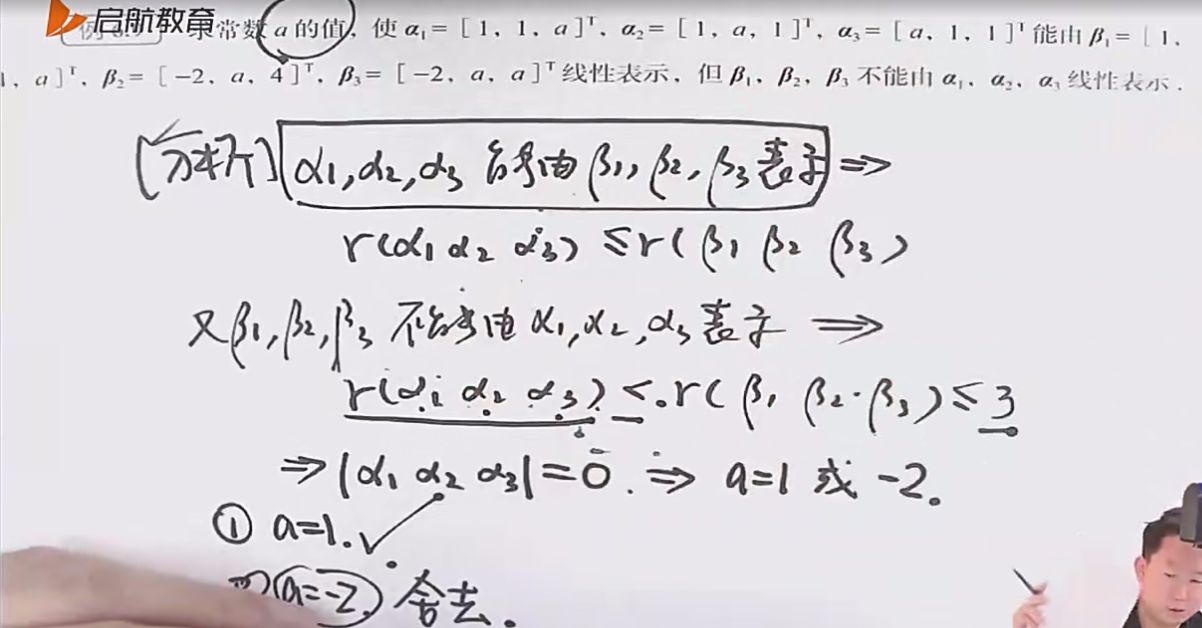 启航教育
求常数 a 的值，使 α₁= [ 1，1，a ]ᵀ，α₂= [ 1，a，1 ]ᵀ，α₃= [ a，1，1 ]ᵀ 能由 β₁= [ 1，
1，a ]ᵀ，β₂= [ -2，a，4 ]ᵀ，β₃= [ -2，a，a ]ᵀ 线性表示，但 β₁，β₂，β₃ 不能由 α₁，α₂，α₃ 线性表示．
α1,α2,α3 能由 β1,β2,β3 表示 ⇒
r(α1 α2 α3) ≤ r(β1 β2 β3)
又 β1,β2,β3 不能由 α1,α2,α3 表示 ⇒
r(α1 α2 α3) < r(β1 β2 β3) ≤ 3
⇒ |α1 α2 α3| = 0. ⇒ a=1 或 -2.
① a=1. ✓
② a=-2. 舍去.